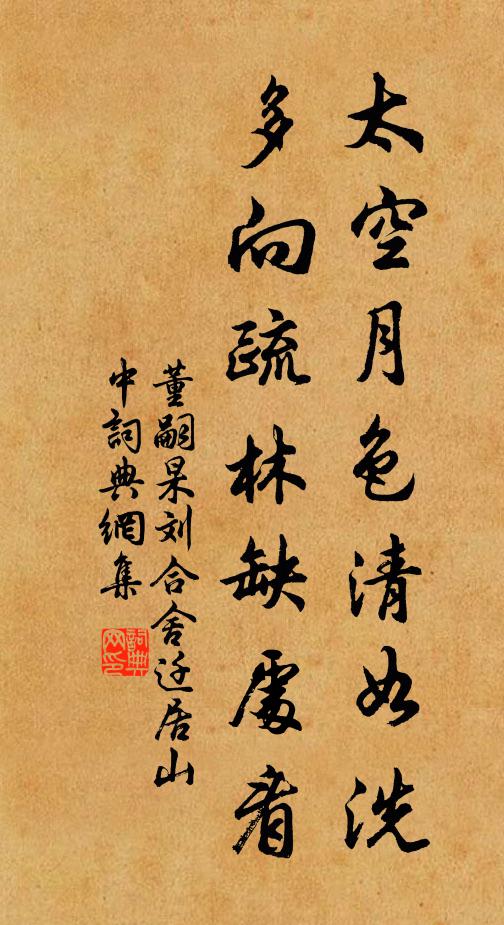 太空月色清如洗
多向疏林缺處看
董嗣杲刘合舍迁居山
中詞典網集
詞典
网印